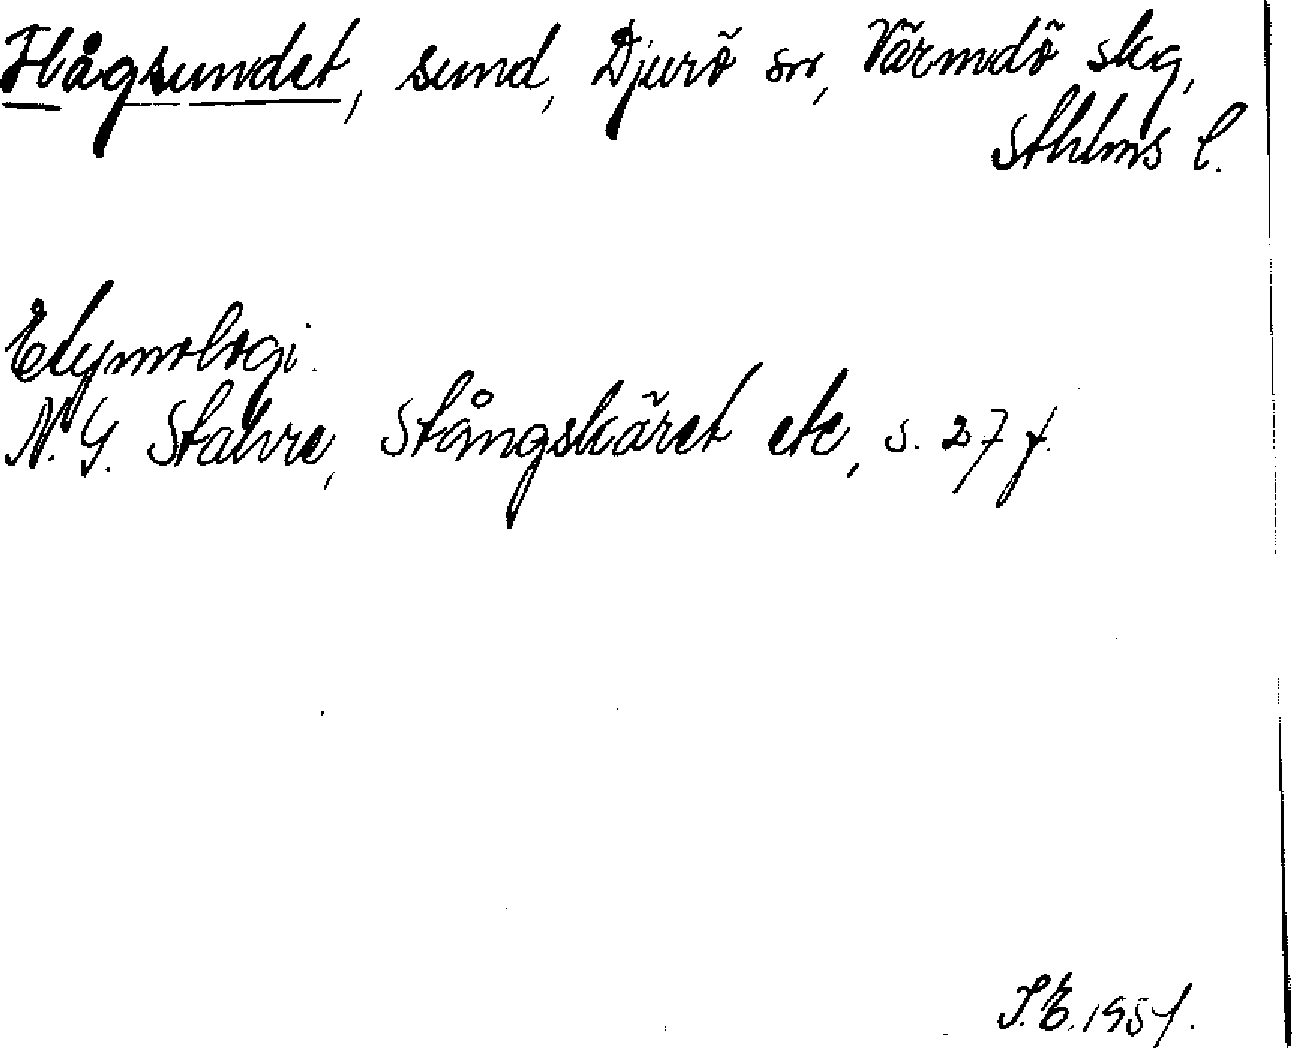 Hågsundet, sund, Djurö sn, Värmdö skg,
Sthlms l.
Etymologi.
N. G. Stahre, Stångskäret etc, s. 27 f.
S.E. 1957.